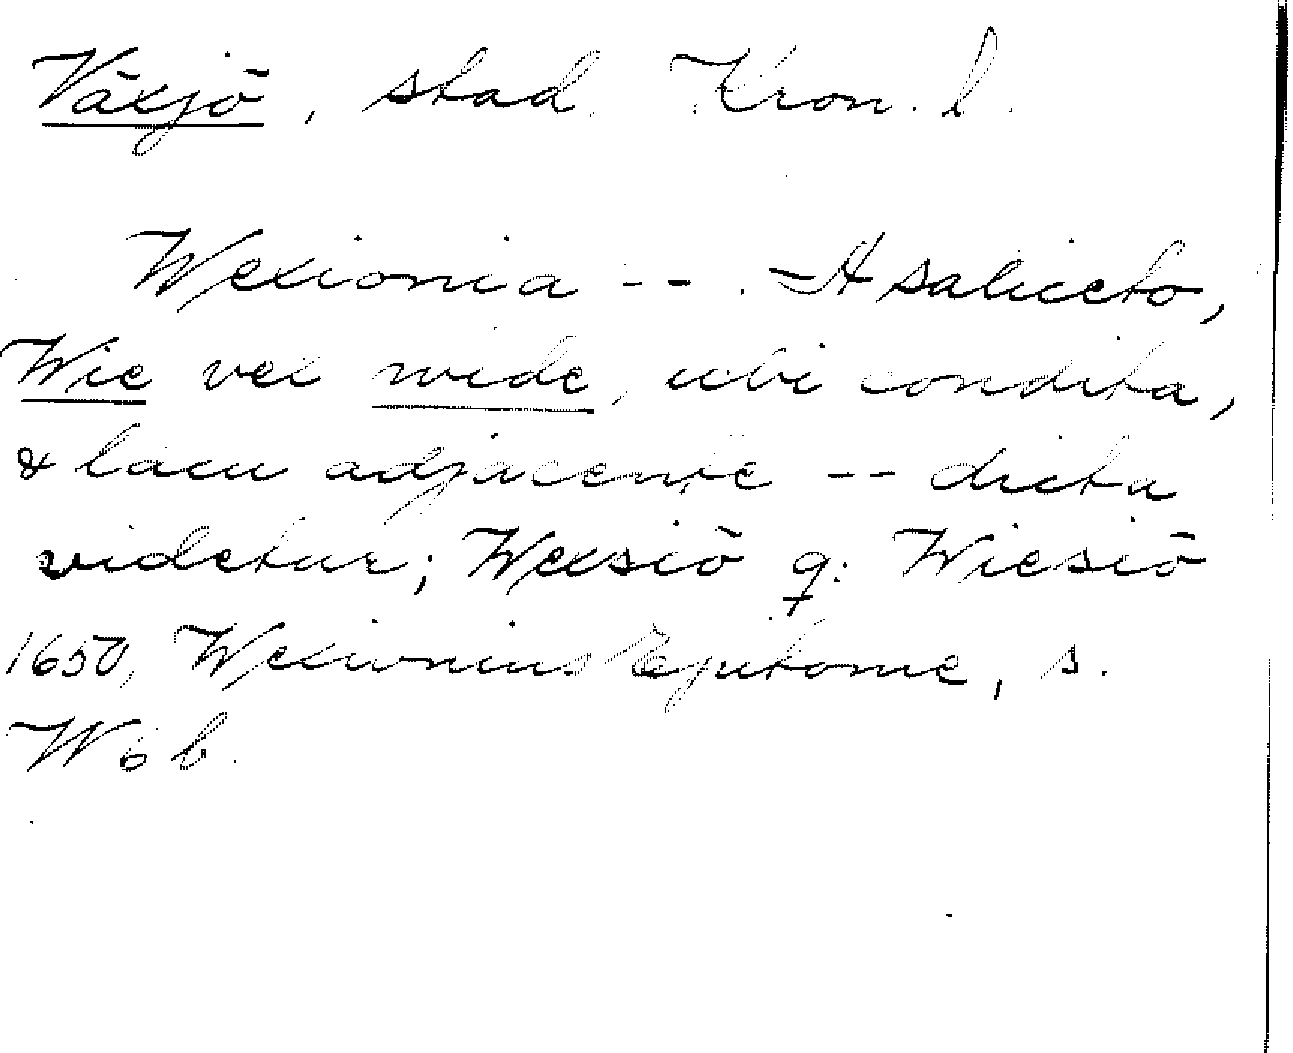 Växjö, stad. Kron. l.
Wexionia --. - A saliceto,
Wie vel wide, ubi condita,
& lacu adjacente -- dicta
videtur; Wexsiö q: Wiesiö
1650, Wexionius Epitome, s.
W 6 b.